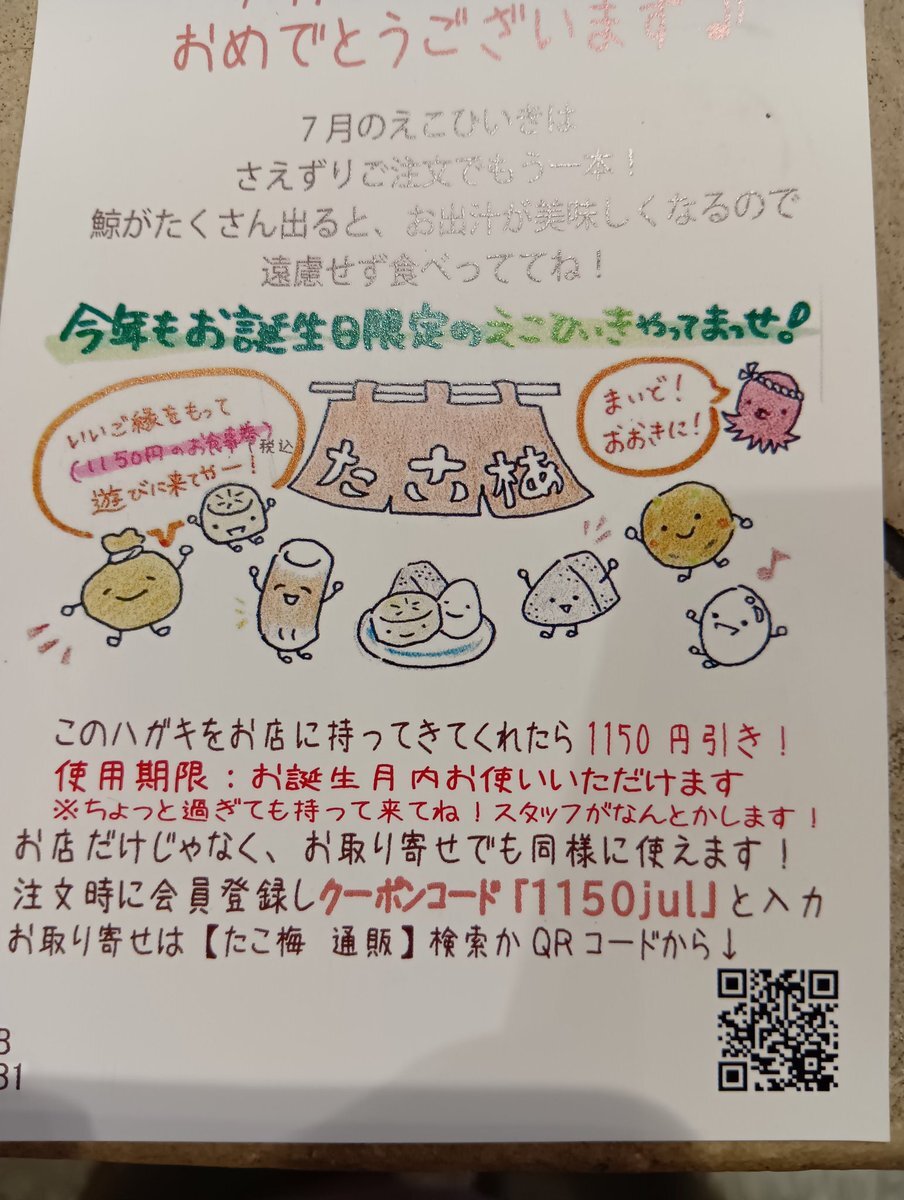 おめでとうございます♪
7月のえこひいきは
さえずりご注文でもう一本！
鯨がたくさん出ると、お出汁が美味しくなるので
遠慮せず食べってててね！
今年もお誕生日限定のえこひいきやってまっせ！
いいご縁をもって
(1150円のお食事券)税込
遊びに来てやー！
たこ梅
まいど！
おおきに！
このハガキをお店に持ってきてくれたら1150円引き！
使用期限：お誕生月内お使いいただけます
※ちょっと過ぎても持って来てね！スタッフがなんとかします！
お店だけじゃなく、お取り寄せでも同様に使えます！
注文時に会員登録しクーポンコード「1150jul」と入力
お取り寄せは【たこ梅 通販】検索かQRコードから↓
3
31